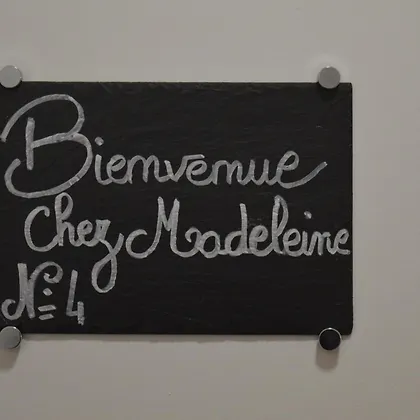 Bienvenue
chez Madeleine
N° 4